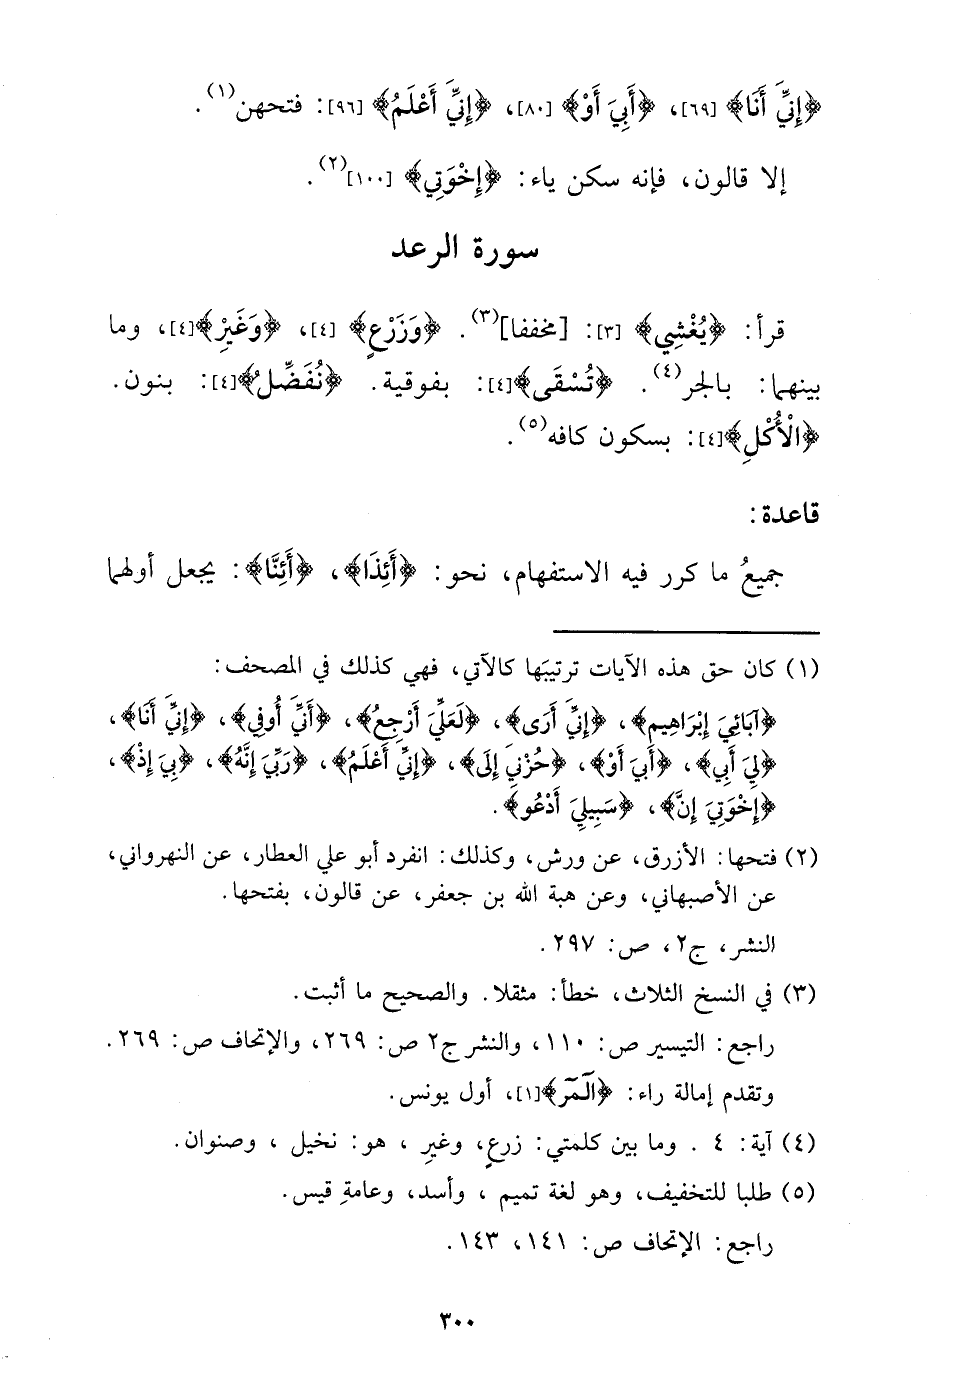 ﴿إِنِّيَ أَنَا﴾ [٦٩]، ﴿أَبِيَ أَوْ﴾ [٨٠]، ﴿إِنِّيَ أَعْلَمُ﴾ [٩٦]: فتحهن(١).
إلا قالون، فإنه سكن ياء: ﴿إِخْوَتِي﴾ [١٠٠](٢).
سورة الرعد
قرأ: ﴿يُغْشِي﴾ [٣]: [مخففا](٣). ﴿وَزَرْعٍ﴾ [٤]، ﴿وَغَيْرِ﴾[٤]، وما
بينهما: بالجر(٤). ﴿تُسْقَى﴾[٤]: بفوقية. ﴿نُفَضِّلُ﴾[٤]: بنون.
﴿الْأُكْلِ﴾[٤]: بسكون كافه(٥).
قاعدة:
جميعُ ما كرر فيه الاستفهام، نحو: ﴿أَئِذَا﴾، ﴿أَئِنَّا﴾: يجعل أولهما
(١) كان حق هذه الآيات ترتيبَها كالآتي، فهي كذلك في المصحف:
﴿آبَائِيَ إِبْرَاهِيم﴾، ﴿إِنِّيَ أَرَى﴾، ﴿لَعَلِّيَ أَرْجِعُ﴾، ﴿أَنِّيَ أُوفِي﴾، ﴿إِنِّيَ أَنَا﴾،
﴿لِيَ أَبِي﴾، ﴿أَبِيَ أَوْ﴾، ﴿حُزْنِيَ إِلَى﴾، ﴿إِنِّيَ أَعْلَمُ﴾، ﴿رَبِّيَ إِنَّهُ﴾، ﴿بِيَ إِذْ﴾،
﴿إِخْوَتِيَ إِنَّ﴾، ﴿سَبِيلِيَ أَدْعُو﴾.
(٢) فتحها: الأزرق، عن ورش، وكذلك: انفرد أبو علي العطار، عن النهرواني،
عن الأصبهاني، وعن هبة الله بن جعفر، عن قالون، بفتحها.
النشر، ج٢، ص: ٢٩٧.
(٣) في النسخ الثلاث، خطأ: مثقلا. والصحيح ما أثبت.
راجع: التيسير ص: ١١٠، والنشر ج٢ ص: ٢٦٩، والإتحاف ص: ٢٦٩.
وتقدم إمالة راء: ﴿الٓمٓر﴾[١]، أول يونس.
(٤) آية: ٤ . وما بين كلمتي: زرعٍ، وغيرِ ، هو: نخيل ، وصنوان.
(٥) طلبا للتخفيف، وهو لغة تميم ، وأسد، وعامةِ قيس.
راجع: الإتحاف ص: ١٤١، ١٤٣.
٣٠٠